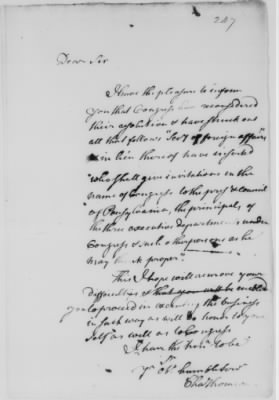 247
Dear Sir
I have the pleasure to inform
you that Congress have reconsidered
their resolution & have struck out
all that follows "Secy of foreign affairs"
& in lieu thereof have inserted
"who shall give invitations in the
name of Congress to the prest & council
of Pensylvania, the principals of
the three executive departments under
Congress & such other persons as he
may think proper"
This I hope will remove your
difficulties & that you will be enabled
to proceed in executing the business
in such way as will do honor to your
self as well as to Congress
I have the honr to be
yr obt humble servt
Chas Thomson